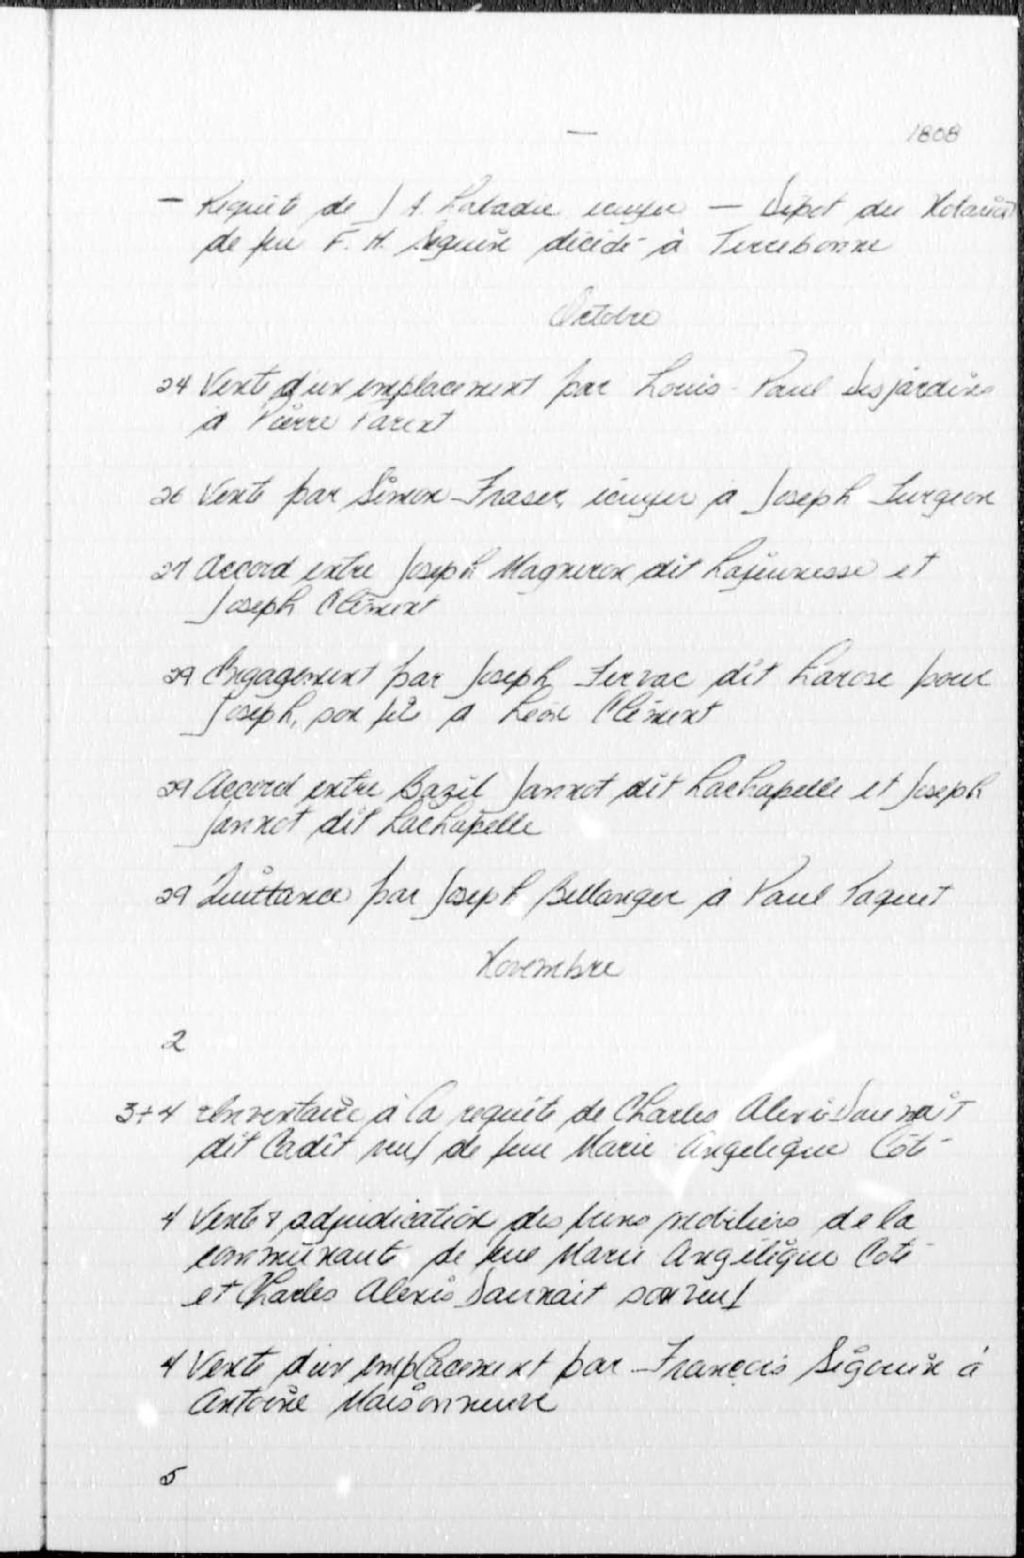 —
1808
— Requête de J A. Labadie ecuyer — Dépot du Notariat
de feu F. H. Seguin décédé à Terrebonne
Octobre
24 Vente d'un emplacement par Louis-Paul Desjardins
à Pierre Parent
26 Vente par Simon Fraser, écuyer à Joseph Turgeon
27 Accord entre Joseph Magneron dit Lajeunesse et
Joseph Clément
29 Engagement par Joseph Servac dit Larose pour
Joseph, son fils à Léon Clément
29 Accord entre Bazil Jannot dit Lachapelle et Joseph
Jannot dit Lachapelle
29 Quittance par Joseph Bellanger à Paul Paquet
Novembre
2
3+4 Inventaire à la requête de Charles Alexis
dit Cadit veuf de feue Marie Angelique Coté
4 Vente & adjudication des biens mobiliers de la
communauté de feue Marie Angélique Coté
et Charles Alexis son veuf
4 Vente d'un emplacement par François Ségouin à
Antoine Maisonneuve
5